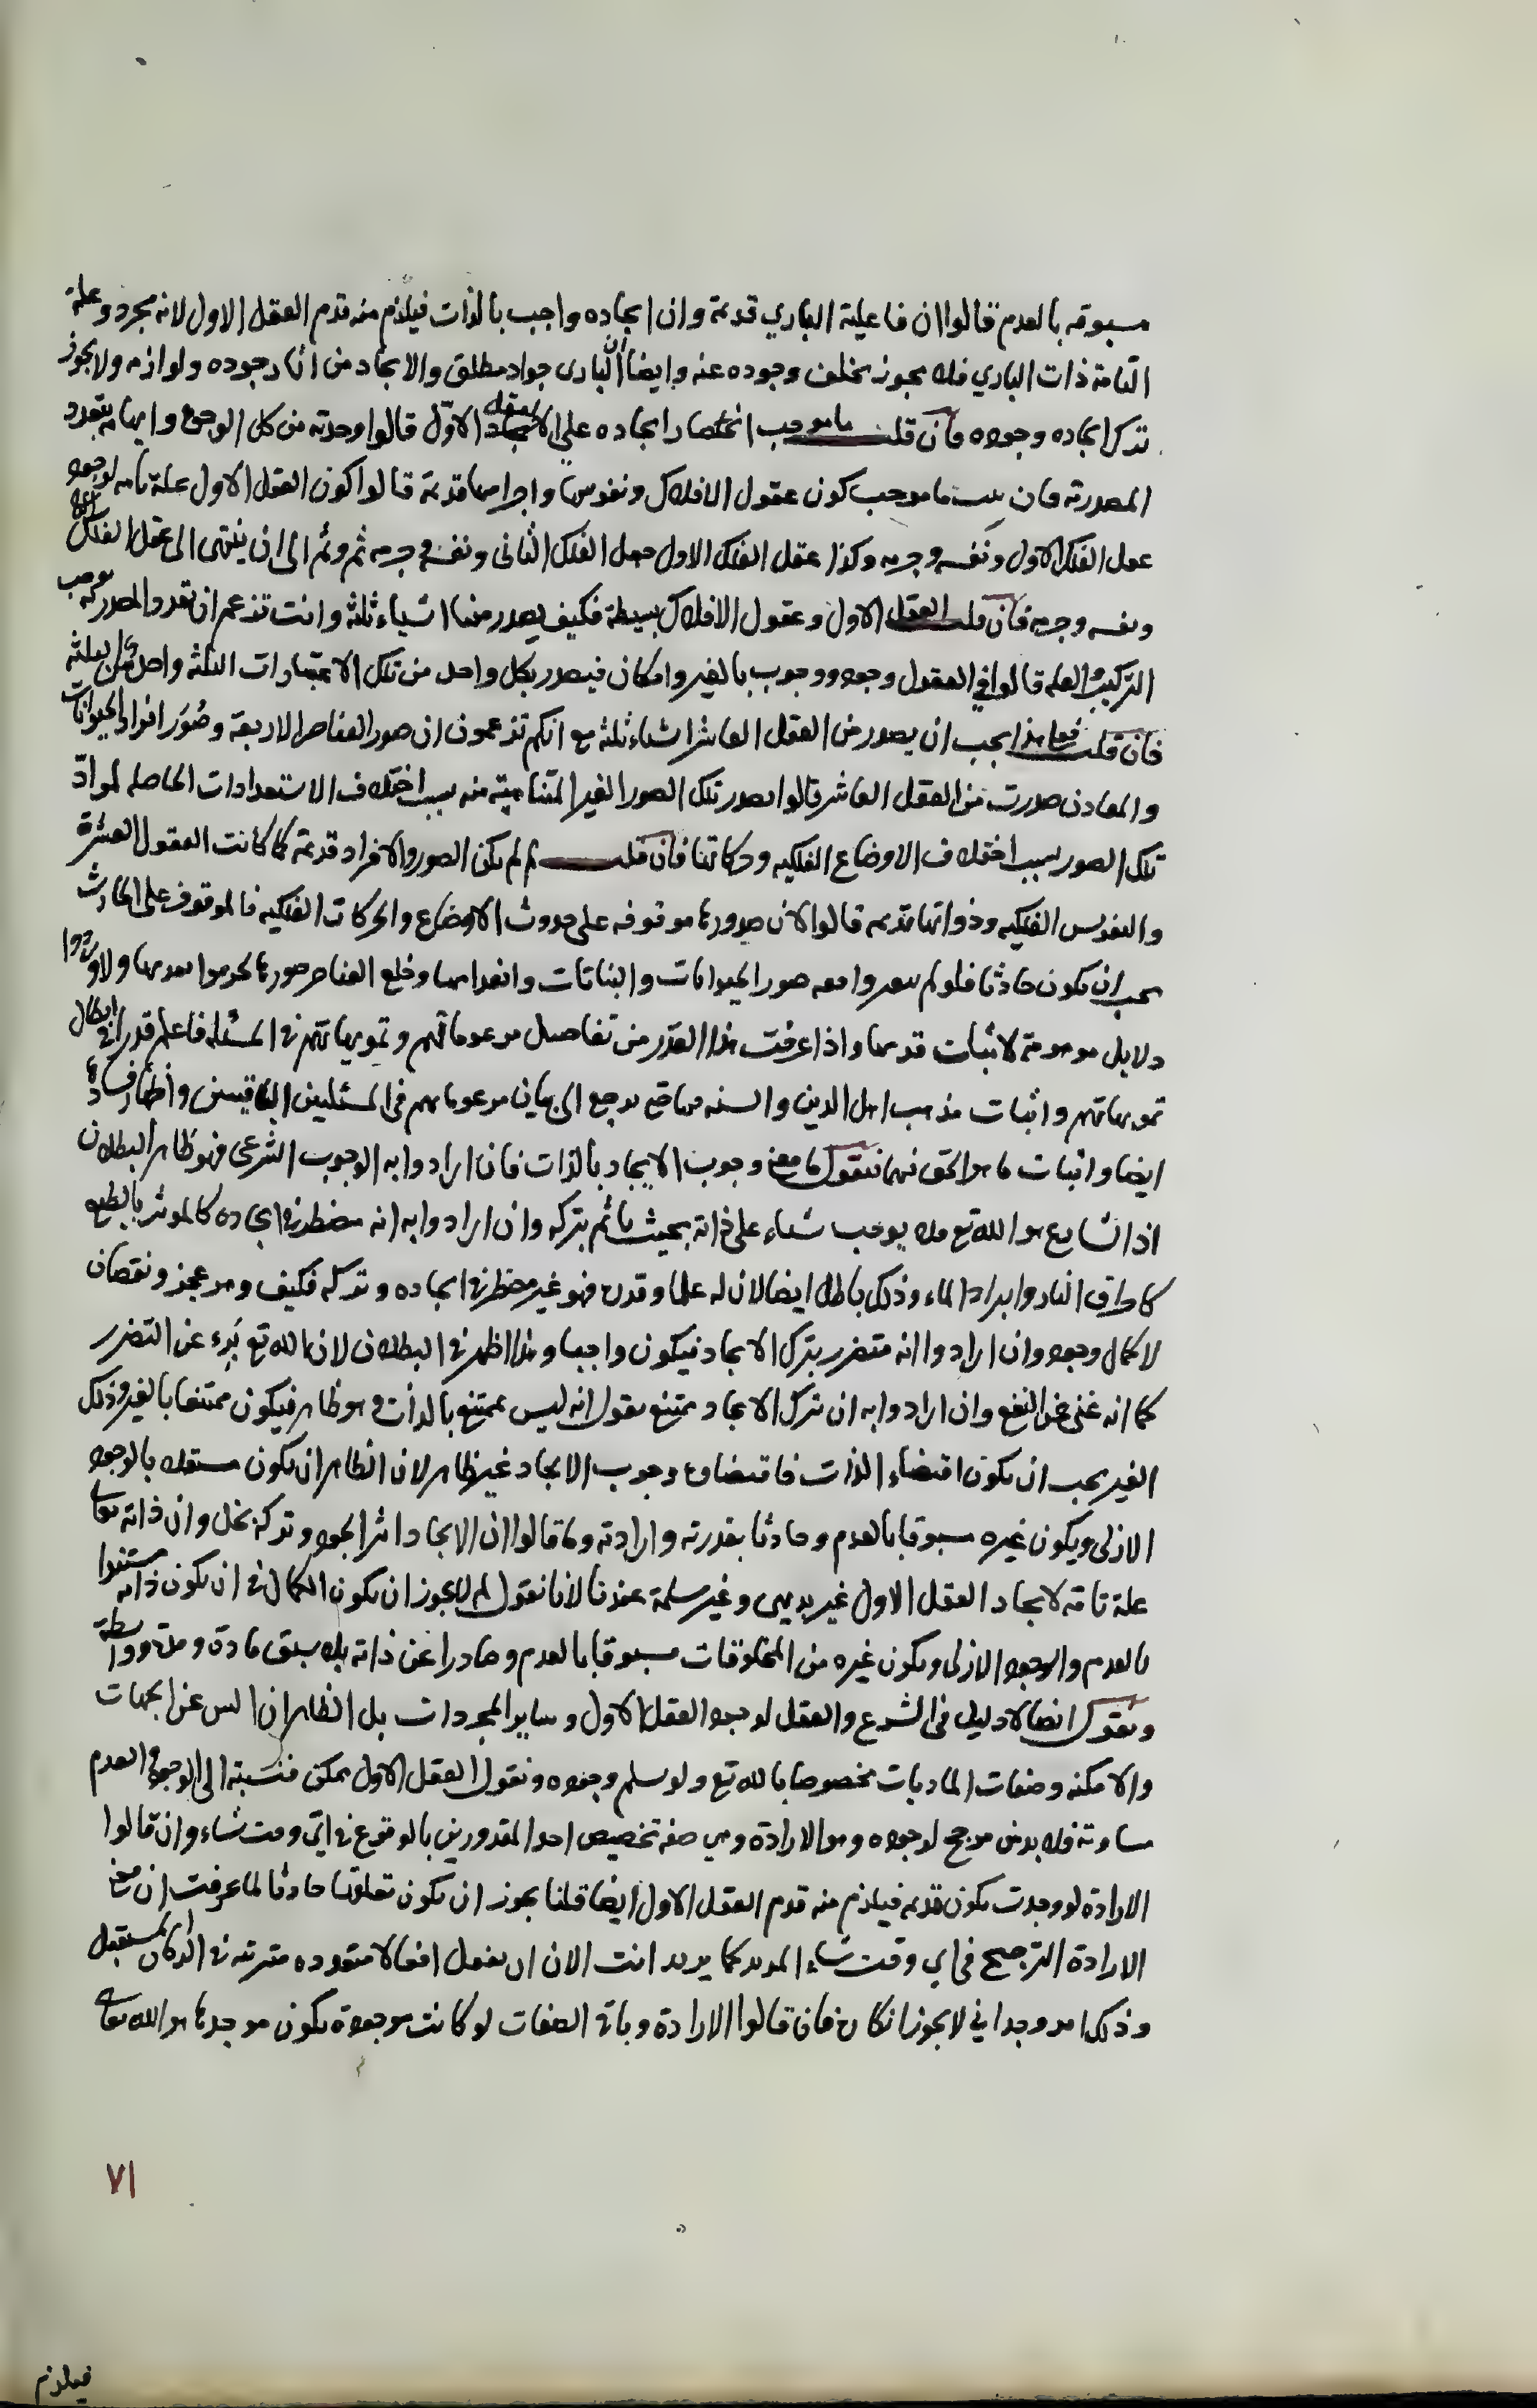 مسبوقه بالعدم قالوا ان فاعلية الباري قديمة وان ايجاده واجب بالذات فيلزم منه قدم العقل الاول لانه مجرد وعلة
التامة ذات الباري فلا يجوز تخلف وجوده عنه وايضا ان الباري جواد مطلق والايجاد من اثار وجوده ولوازمه ولا يجوز
ترك ايجاده وجوده فان قلت ما موجب انحصار ايجاده على العقل الاول قالوا وحدته من كل الوجوه وايهامه بتعدد
المصدرية فان قلت ما موجب كون عقول الافلاك ونفوسها واجرامها قديمة قالوا كون العقل الاول علة تامة لوجود
عقل الفلك الاول ونفسه وجرمه وكذا عقل الفلك الاول جعل الفلك الثاني ونفسه وجرمه ثم وثم الى ان ينتهى الى عقل الفلك
ونفسه وجرمه فان قلت العقل الاول وعقول الافلاك بسيطة فكيف يصدر منها اشياء ثلثة وانت تزعم ان تعدد المصدرية يوجب
التركيب في العلة قالوا في العقول وجود ووجوب بالغير وامكان فيصدر بكل واحد من تلك الاعتبارات الثلثة واحد من الثلثة
فان قلت فعلى هذا يجب ان يصدر من العقل العاشر اشياء ثلثة مع انكم تزعمون ان صور العناصر الاربعة وصُوَر افراد الحيوانات
والمعادن صدرت من العقل العاشر قالوا صدور تلك الصور الغير المتناهية منه بسبب اختلاف الاستعدادات الحاصلة لموادّ
تلك الصور بسبب اختلاف الاوضاع الفلكيه وحركاتها فان قلت لم لم يكن الصور والافراد قديمة كما كانت العقول العشرة
والنفوس الفلكيه وذواتها قديمه قالوا لان صدورها موقوفه على حدوث الاوضاع والحركات الفلكيه فالموقوف على الحادث
يجب ان يكون حادثا فلو لم يعدوا معه صور الحيوانات والنباتات وانعدامها وخلع العناصر صورها لحرموا بعدمها ولاوردوا
دلايل موهومة لاثبات قدمها واذا عرفت هذا القدر من تفاصيل مزعوماتهم وتمويهاتهم في المسئله فاعلم قدرا في ابطال
تمويهاتهم واثبات مذهب اهل الدين والسنه فيها ثم يرجع الى بيان مزعوماتهم في المسئلتين الباقيتين واظهار فسادها
ايضا واثبات ما هو الحق فيهما فنقول ما معنى وجوب الايجاد بالذات فان ارادوا به الوجوب الشرعى فهو ظاهر البطلان
اذ الشارع هو الله تع فلا يوجب شياء على ذاته بحيث ياثم بتركه وان ارادوا به انه مضطر في ايجاده كالموثر بالطبع
كاحراق النار وابراد الماء وذلك باطل ايضا لان له علما وقدرة فهو غير مضطر في ايجاده وتركه فكيف وهو عجز ونقصان
لا كمال وجود وان ارادوا انه متضرر بترك الايجاد فيكون واجبا وهذا اظهر في البطلان لان الله تع بَرِء عن التضرر
كما انه غنى عن النفع وان ارادوا به ان ترك الايجاد ممتنع نقول انه ليس بممتنع بالذات وهو ظاهر فيكون ممتنعا بالغير وذلك
الغير يجب ان يكون اقتضاء الذات فاقتضاوه وجوب الايجاد غير ظاهر لان الظاهر ان يكون مستقلا بالوجود
الازلى ويكون غيره مسبوقا بالعدم وحادثا بقدرته وارادته وما قالوا ان الايجاد اثر الجود وتركه بخل وان ذاته تعالى
علة تامة لايجاد العقل الاول غير بديهى وغير مسلمة عندنا لانا نقول لم لا يجوز ان يكون الكمال في ان يكون ذاته
بالعدم والوجود الازلى ويكون غيره من المخلوقات مسبوقا بالعدم وصادرا عن ذاته بلا سبق مادة ومدة وواسطة
ونقول ايضا لا دليل في الشرع والعقل لوجود العقل الاول وساير المجردات بل الظاهر ان ليس عن الجهات
والامكنه وصفات الماديات مخصوصا بالله تع ولو سلم وجوده ونقول العقل الاول ممكن فنسبته الى الوجود والعدم
مساوية فلا بد من مرجح لوجوده وهو الارادة وهي صفه تخصيص احد المقدورين بالوقوع في اي وقت شاء وان قالوا
الارادة لو وجدت يكون قديمه فيلزم منه قدم العقل الاول ايضا قلنا يجوز ان يكون تعلقها حادثا لما عرفت ان معنى
الارادة الترجيح في اي وقت شاء المريد كما يريد انت الان ان تفعل افعالا متعدده مترتبه في الزمان المستقبل
وذلك امر وجداني لا يجوز انكاره فان قالوا الارادة وباقي الصفات لو كانت موجودة يكون موجدها هو الله تعالى
٧١
فيلزم